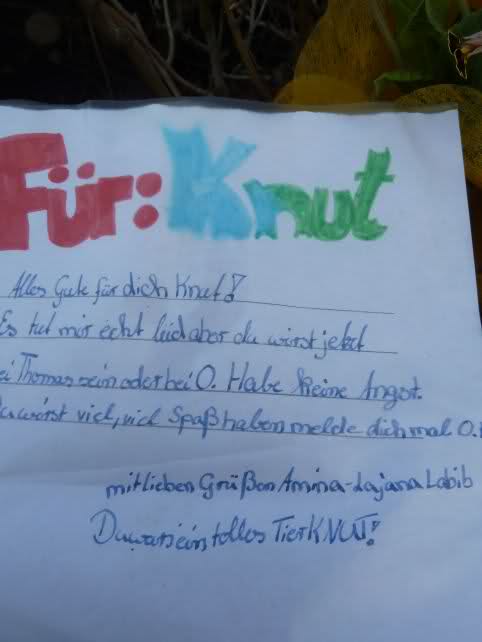 Für: Knut
Alles Gute für dich Knut!
Es tut mir echt leid aber du wirst jetzt
ei Thomas sein oder bei O. Habe keine Angst.
du wirst viel, viel Spaß haben melde dich mal O.K
mit lieben Grüßen Amina-Lajana Labib
Du warst ein tolles Tier KNUT!